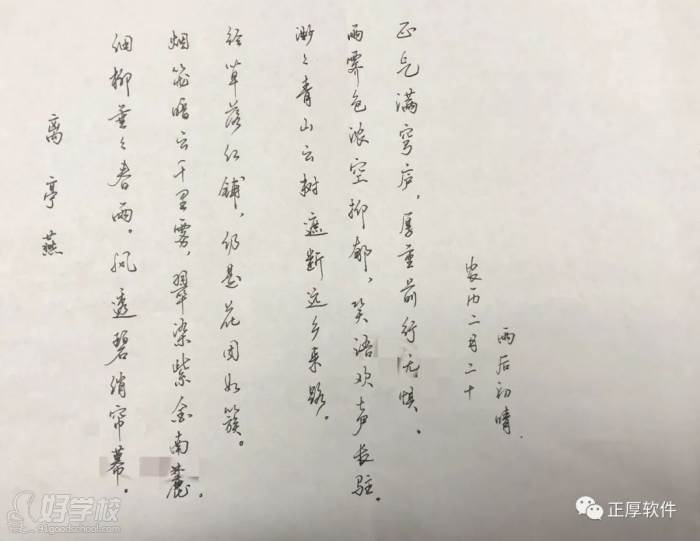 离亭燕
细柳垂々春雨。风透碧绡帘幕。
烟笼暗云千里雾，翠染紫金南麓。
径草落红铺，仍是花团如簇。
渺々青山云树遮断远乡来路。
雨霁色浓空抑郁，笑语欢声长驻。
正气满穹庐，厚重前行无惧。
农历二月二十
雨后初晴
好学校
91goodschool.com
正厚软件